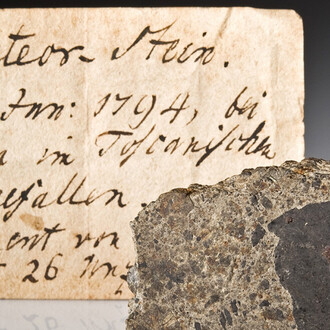 teor-Stein.
Jun: 1794, bei
im Toscanischen
gefallen
ent von
26 Unz